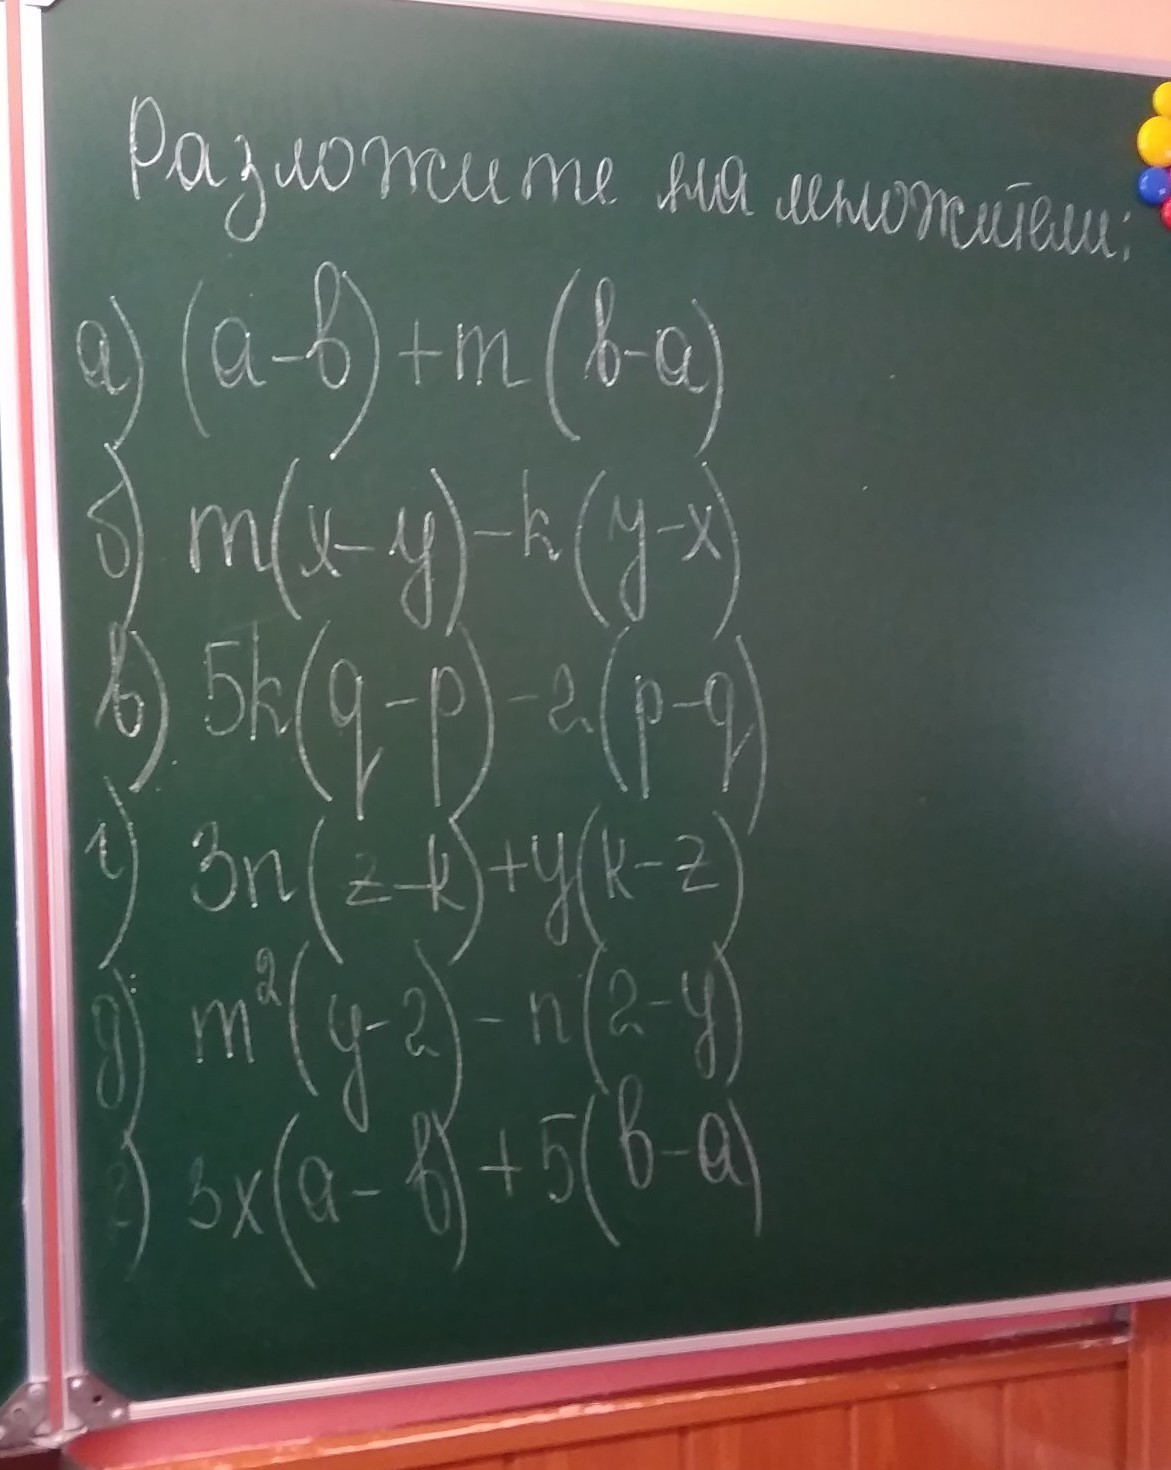 Разложите на множители:
а) (a-b)+m(b-a)
б) m(x-y)-k(y-x)
в) 5k(q-p)-2(p-q)
г) 3n(z-k)+y(k-z)
д) m²(y-2)-n(2-y)
е) 3x(a-b)+5(b-a)